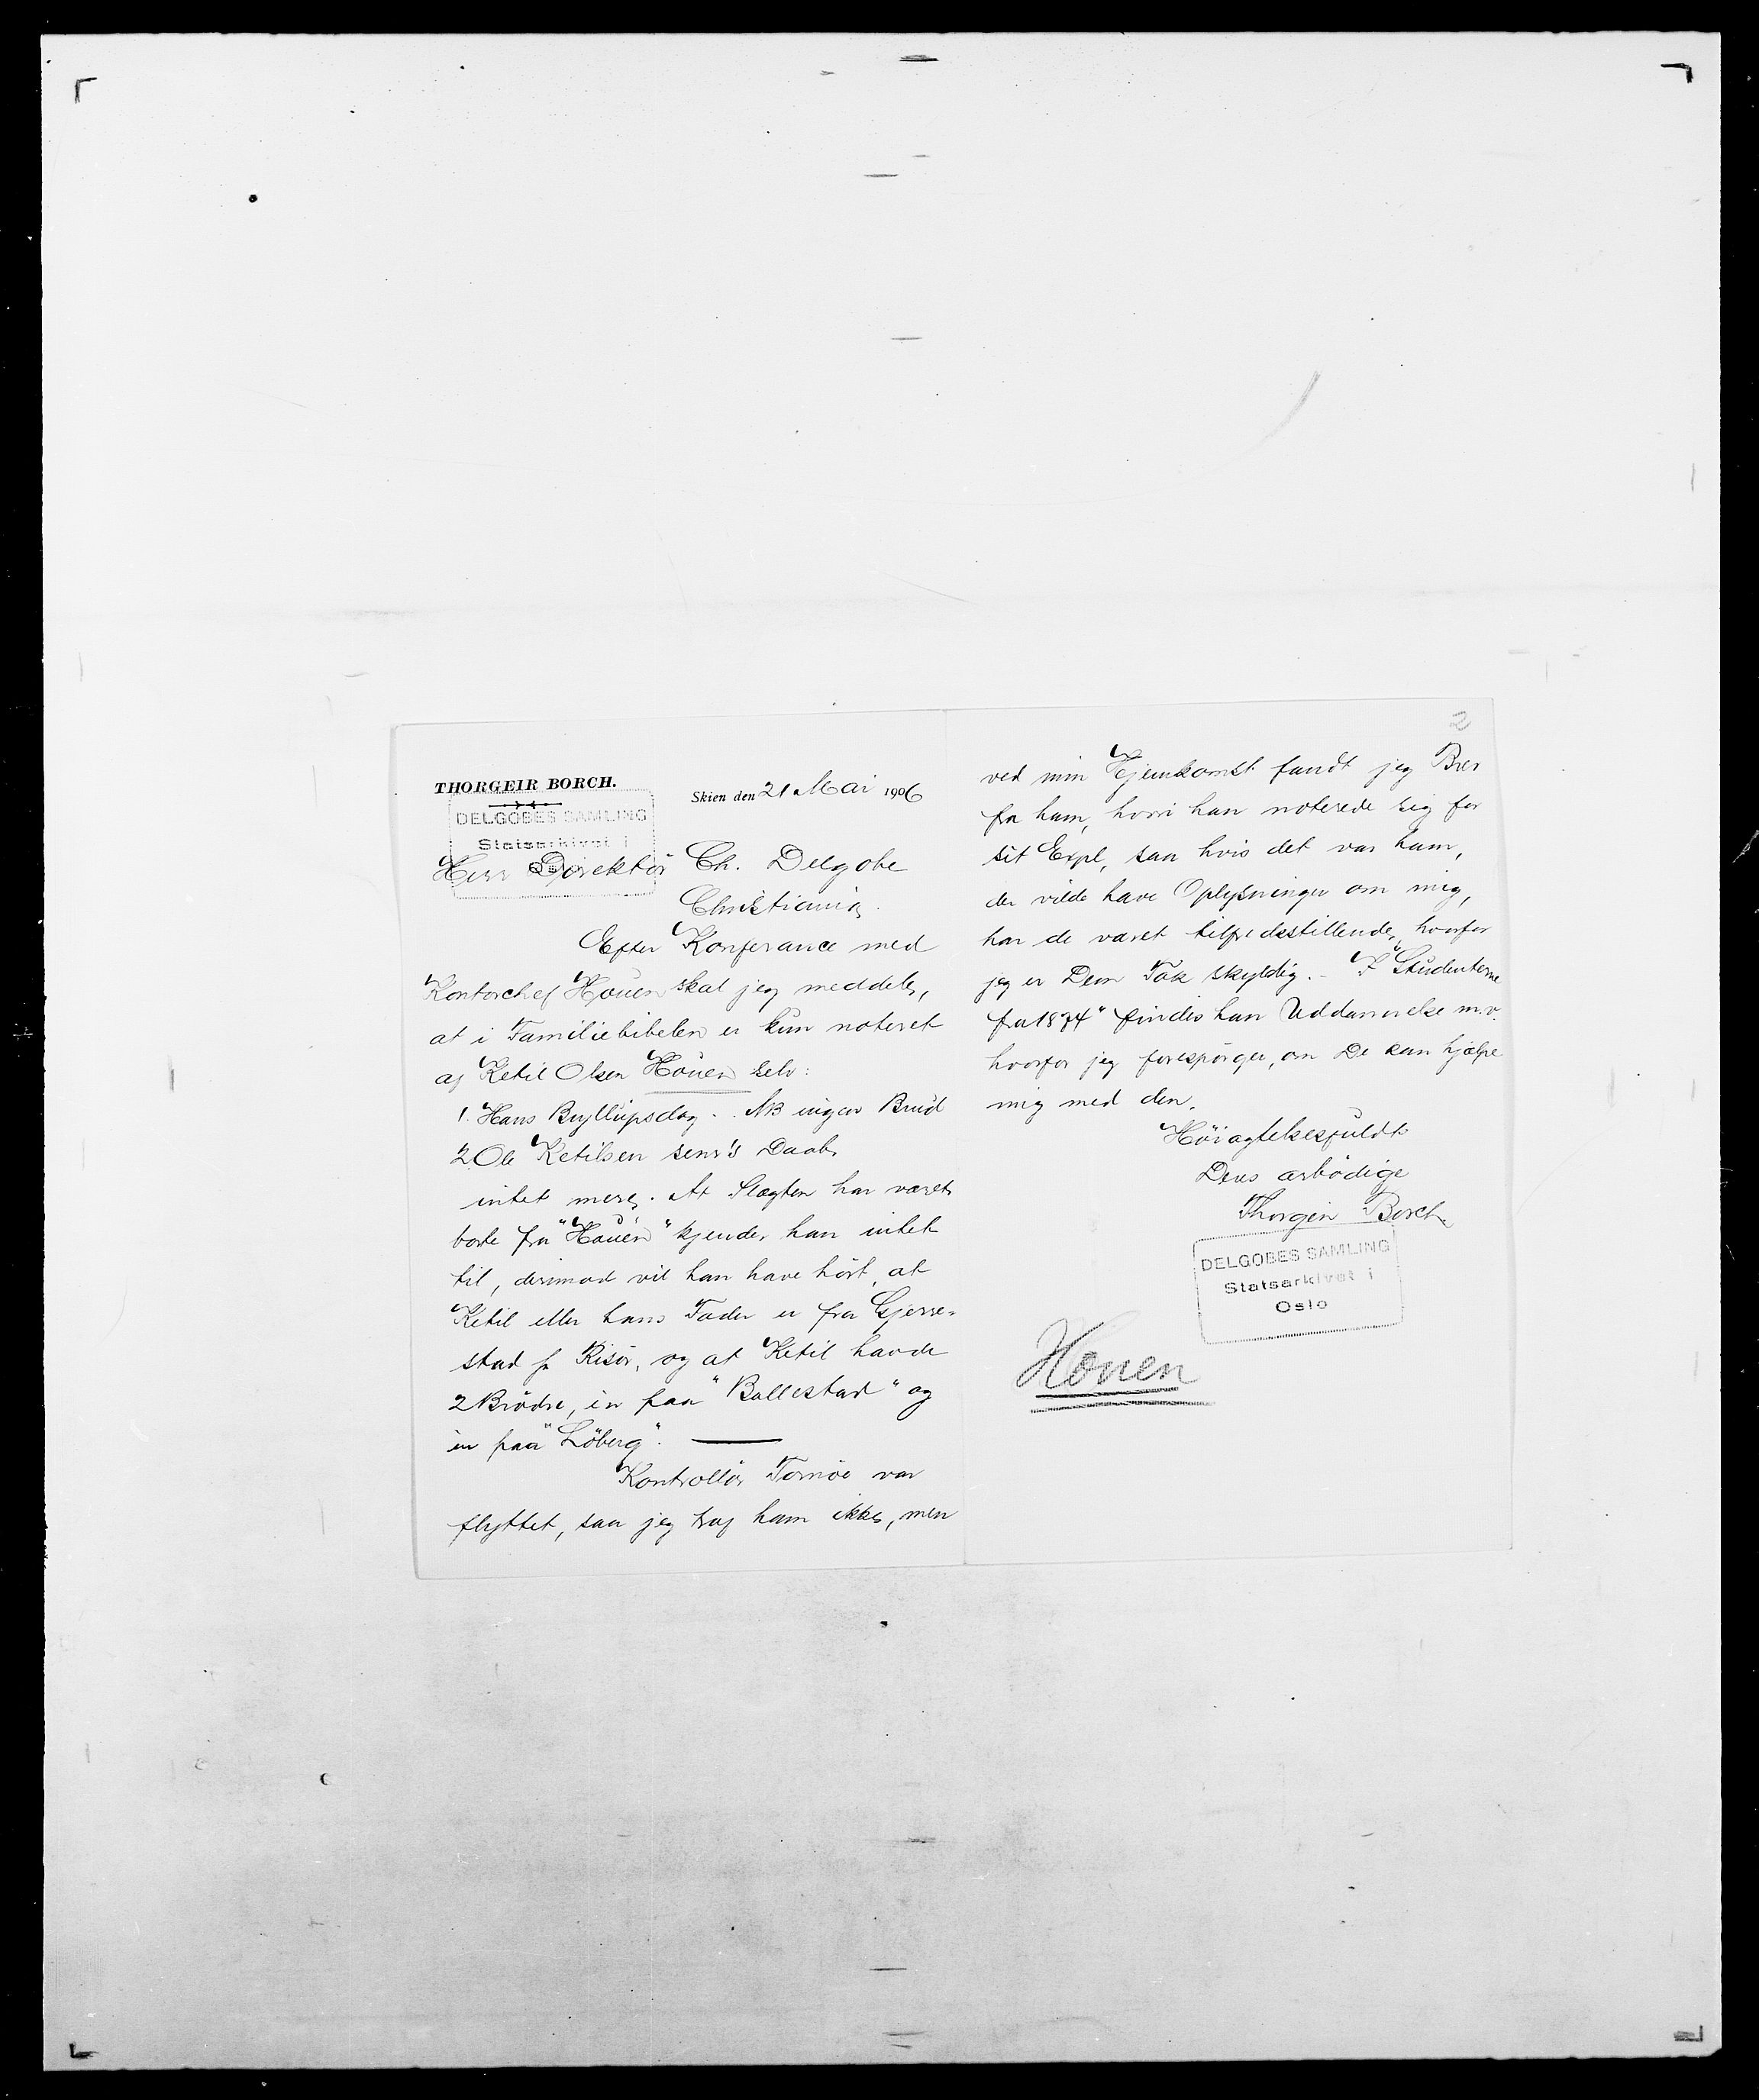 THORGEIR BORCH.
Skien den 21 Mai 1906
DELGOBES SAMLING
Statsarkivet i
Oslo
Herr Direktör Ch. Delgobe
Christiania.
Efter Konferance med
Kontorchef Houen skal jeg meddele,
at i Familiebibelen er kun noteret
af Ketil Olsen Houen selv:
1. Hans Bryllupsdag. NB ingen Brud
2 Ole Ketilsen senr's Daab,
intet mere. At Slægten har været
borte fra "Houen" kjender han intet
til, derimod vil han have hört, at
Ketil eller hans Fader er fra Gjerre-
stad pr Risör, og at Ketil havde
2 Brödre, en paa "Ballestad" og
en paa "Löberg".
Kontrollör Tornöe var
flyttet, saa jeg traf ham ikke, men
2
ved min Hjemkomst fandt jeg Brev
fra ham, hvori han noterede sig for
sit Expl, saa hvis det var ham,
der vilde have Oplysninger om mig,
har de været tilfredsstillende, hvorfor
jeg er Dem Tak skyldig. - I "Studenterne
fra 1874" findes han Uddannelse m.v.
hvorfor jeg forespörger, om De kan hjælpe
mig med den.
Höiagtelsesfuldt
Deres ærbödige
Thorgeir Borch
DELGOBES SAMLING
Statsarkivet i
Oslo
Houen